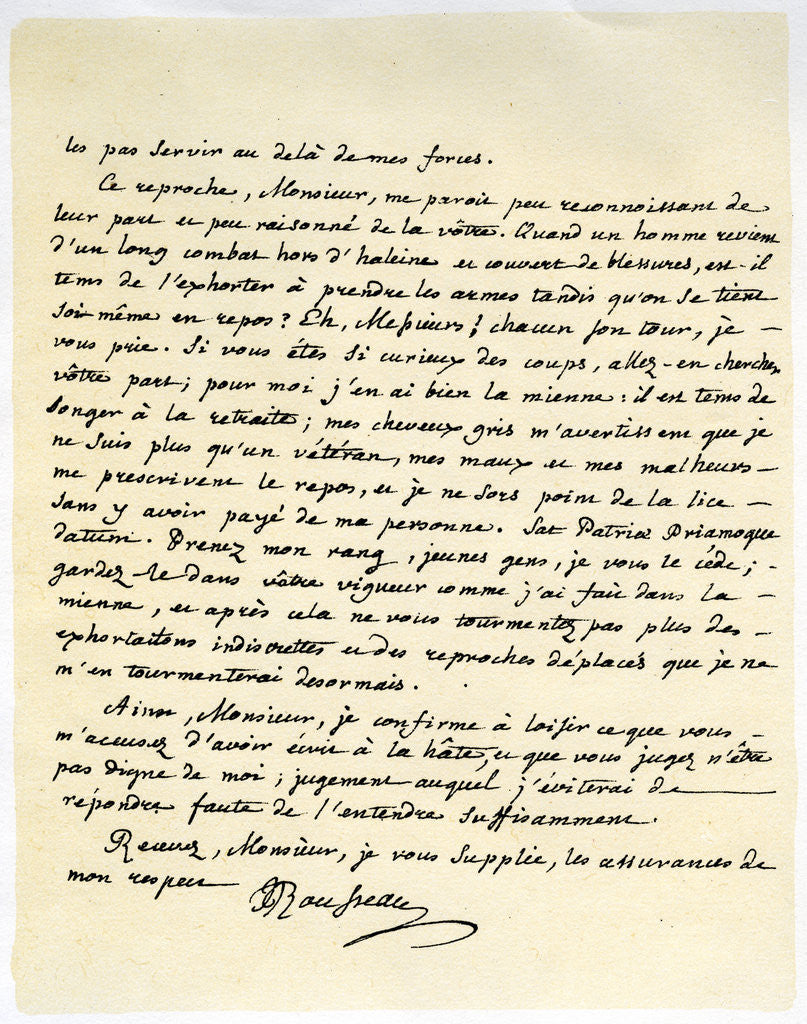 les pas servir au delà de mes forces.
Ce reproche, Monsieur, me paroit peu reconnoissant de
leur part et peu raisonné de la vôtre. Quand un homme revient
d'un long combat hors d'haleine et couvert de blessures, est-il
tems de l'exhorter à prendre les armes tandis qu'on se tient
soi-même en repos? Eh, Messieurs! chacun son tour, je —
vous prie. Si vous étes si curieux des coups, allez-en chercher
vôtre part; pour moi j'en ai bien la mienne: il est tems de
songer à la retraite; mes cheveux gris m'avertissent que je
ne suis plus qu'un vétéran, mes maux et mes malheurs —
me prescrivent le repos, et je ne sors point de la lice —
sans y avoir payé de ma personne. Sat Patriæ Priamoque
datum. Prenez mon rang, jeunes gens, je vous le céde; -
gardez-le dans vôtre vigueur comme j'ai fait dans la —
mienne, et après cela ne vous tourmentez pas plus des -
exhortaitons indiscrettes et des reproches déplacés que je ne
m'en tourmenterai desormais.
Ainsi, Monsieur, je confirme à loisir ce que vous —
m'accusez d'avoir écrit à la hâte, et que vous jugez n'être
pas digne de moi; jugement auquel j'éviterai de —
répondre faute de l'entendre suffisamment.
Recevez, Monsieur, je vous supplie, les assurances de
mon respect
JJRousseau